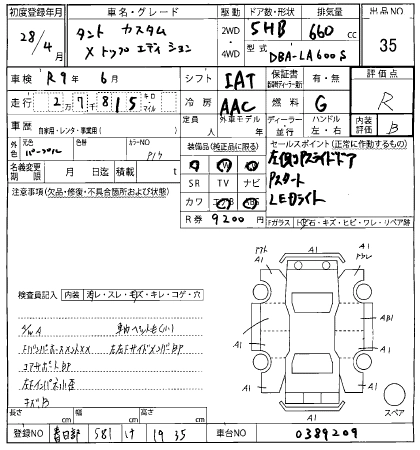 初度登録年月 車名・グレード 駆動 ドア数・形状 排気量 出品NO
28/4月 タント カスタム 2WD 5HB 660cc 35
X トップエディション 4WD 型式 DBA-LA600S
車検 R9年 6月 シフト IAT 保証書 有・無 評価点
走行 2万7 8 1 5 キロ・マイル 冷房 AAC 燃料 G R
車歴 自家用・レンタ・事業用( ) 定員 外車モデル年 ディーラー 並行 ハンドル 左・右 内装評価 B
外色 元色 パープル 色替 カラーNO P19 装備品(純正品に限る) セールスポイント(正常に作動するもの)
名義変更期限 月 日迄 積載量 t SR TV ナビ 左側Pスライドドア
注意事項(欠品・修復・不具合箇所および状態) カワ エアB ABS Pスタート
R券 9200円 LEDライト
Fガラス トビ石・キズ・ヒビ・ワレ・リペア跡
検査員記入 内装 汚レ・スレ・キズ・キレ・コゲ・穴
コアサポートBP
左Fインパネ小傷
キズB
A1 A1 A1 A1 A1 AB1 A1 A1 A1 A1
スペア
長さ cm 幅 cm 高さ cm
登録NO 春日部 581 け 1935 車台NO 0389209